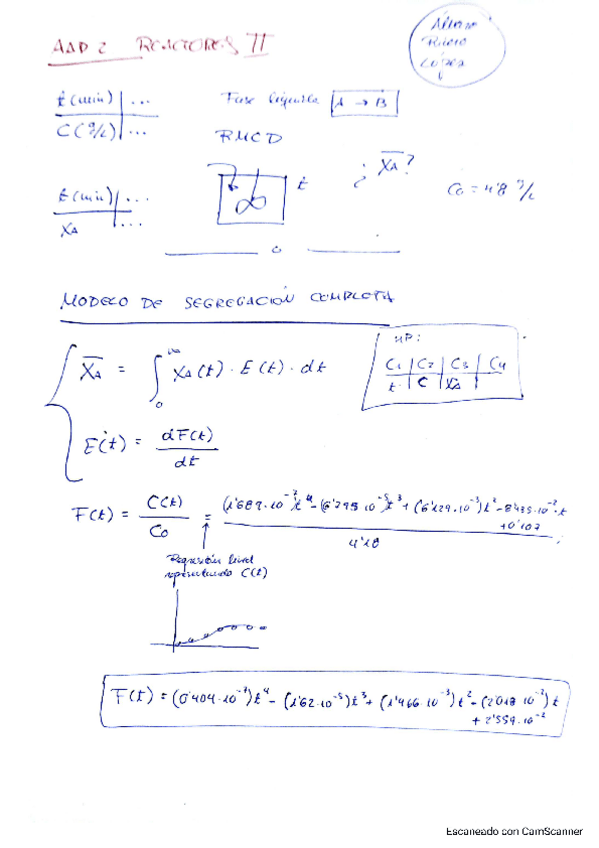 AAD 2 REACTORES II
Álvaro
t (min) | ...
C (g/L) | ...
Fase líquida A → B
RMCD
t
¿ X̄A?
C0 = 4'18 g/L
t (min) | ...
XA | ...
MODELO DE SEGREGACIÓN COMPLETA
X̄A = ∫0^∞ XA(t) · E(t) · dt
HP:
C1 | C2 | C3 | C4
t | C | XA |
E(t) = dF(t) / dt
F(t) = C(t) / C0 = (1'687·10^-7)t^4 - (6'795·10^-5)t^3 + (6'129·10^-3)t^2 - 8'435·10^-2·t
+0'107
4'18
Regresión lineal
representando C(t)
F(t) = (0'404·10^-7)t^4 - (1'62·10^-5)t^3 + (1'466·10^-3)t^2 - (2'018·10^-2)t
+ 2'559·10^-2
Escaneado con CamScanner